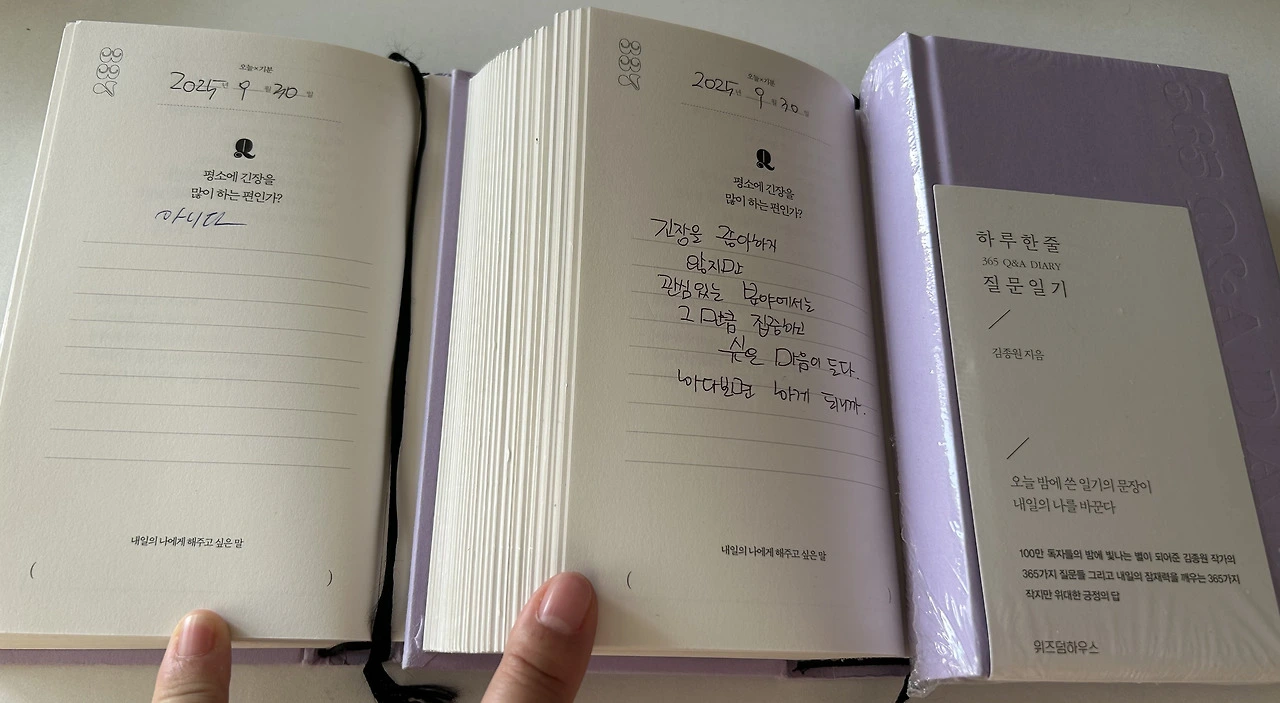 오늘×기분
2025년 9월 30일
Q
평소에 긴장을
많이 하는 편인가?
아니다
내일의 나에게 해주고 싶은 말
( )
오늘×기분
2025년 9월 30일
Q
평소에 긴장을
많이 하는 편인가?
긴장을 좋아하지
않지만
관심있는 분야에서는
그만큼 집중하고
싶은 마음이 든다.
하다보면 하게 되니까.
내일의 나에게 해주고 싶은 말
( )
하루 한 줄
365 Q&A DIARY
질문 일기
김종원 지음
오늘 밤에 쓴 일기의 문장이
내일의 나를 바꾼다
100만 독자들의 밤에 빛나는 별이 되어준 김종원 작가의
365가지 질문들 그리고 내일의 잠재력을 깨우는 365가지
작지만 위대한 긍정의 답
위즈덤하우스